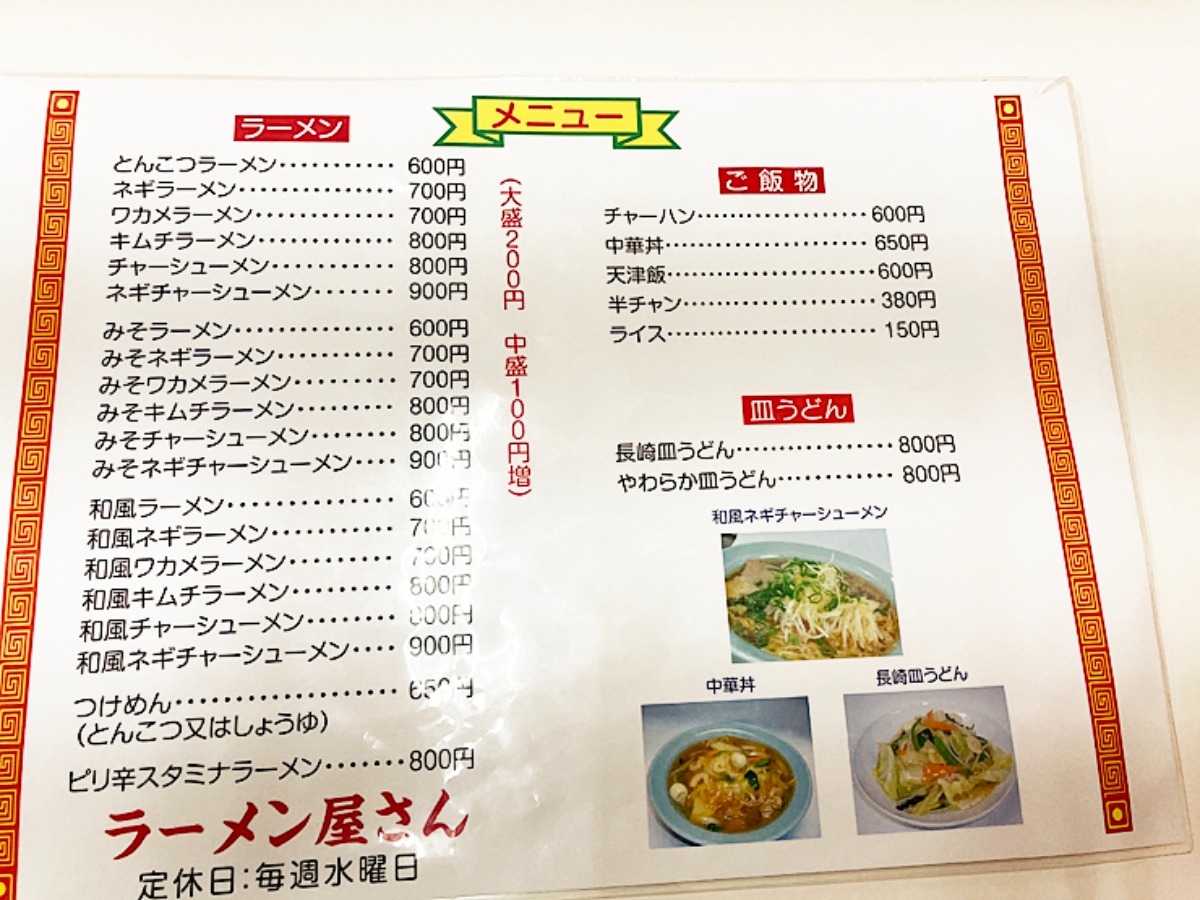 メニュー
ラーメン
とんこつラーメン············ 600円
ネギラーメン··············· 700円
ワカメラーメン············· 700円
キムチラーメン············· 800円
チャーシューメン··········· 800円
ネギチャーシューメン······· 900円
みそラーメン··············· 600円
みそネギラーメン··········· 700円
みそワカメラーメン········· 700円
みそキムチラーメン········· 800円
みそチャーシューメン······· 800円
みそネギチャーシューメン···· 900円
和風ラーメン··············· 600円
和風ネギラーメン··········· 700円
和風ワカメラーメン········· 700円
和風キムチラーメン········· 800円
和風チャーシューメン······· 800円
和風ネギチャーシューメン···· 900円
つけめん·················· 650円
(とんこつ又はしょうゆ)
ピリ辛スタミナラーメン·······800円
ラーメン屋さん
定休日:毎週水曜日
(大盛200円 中盛100円増)
ご飯物
チャーハン··················600円
中華丼····················· 650円
天津飯······················600円
半チャン···················· 380円
ライス······················ 150円
皿うどん
長崎皿うどん················ 800円
やわらか皿うどん············ 800円
和風ネギチャーシューメン
中華丼
長崎皿うどん